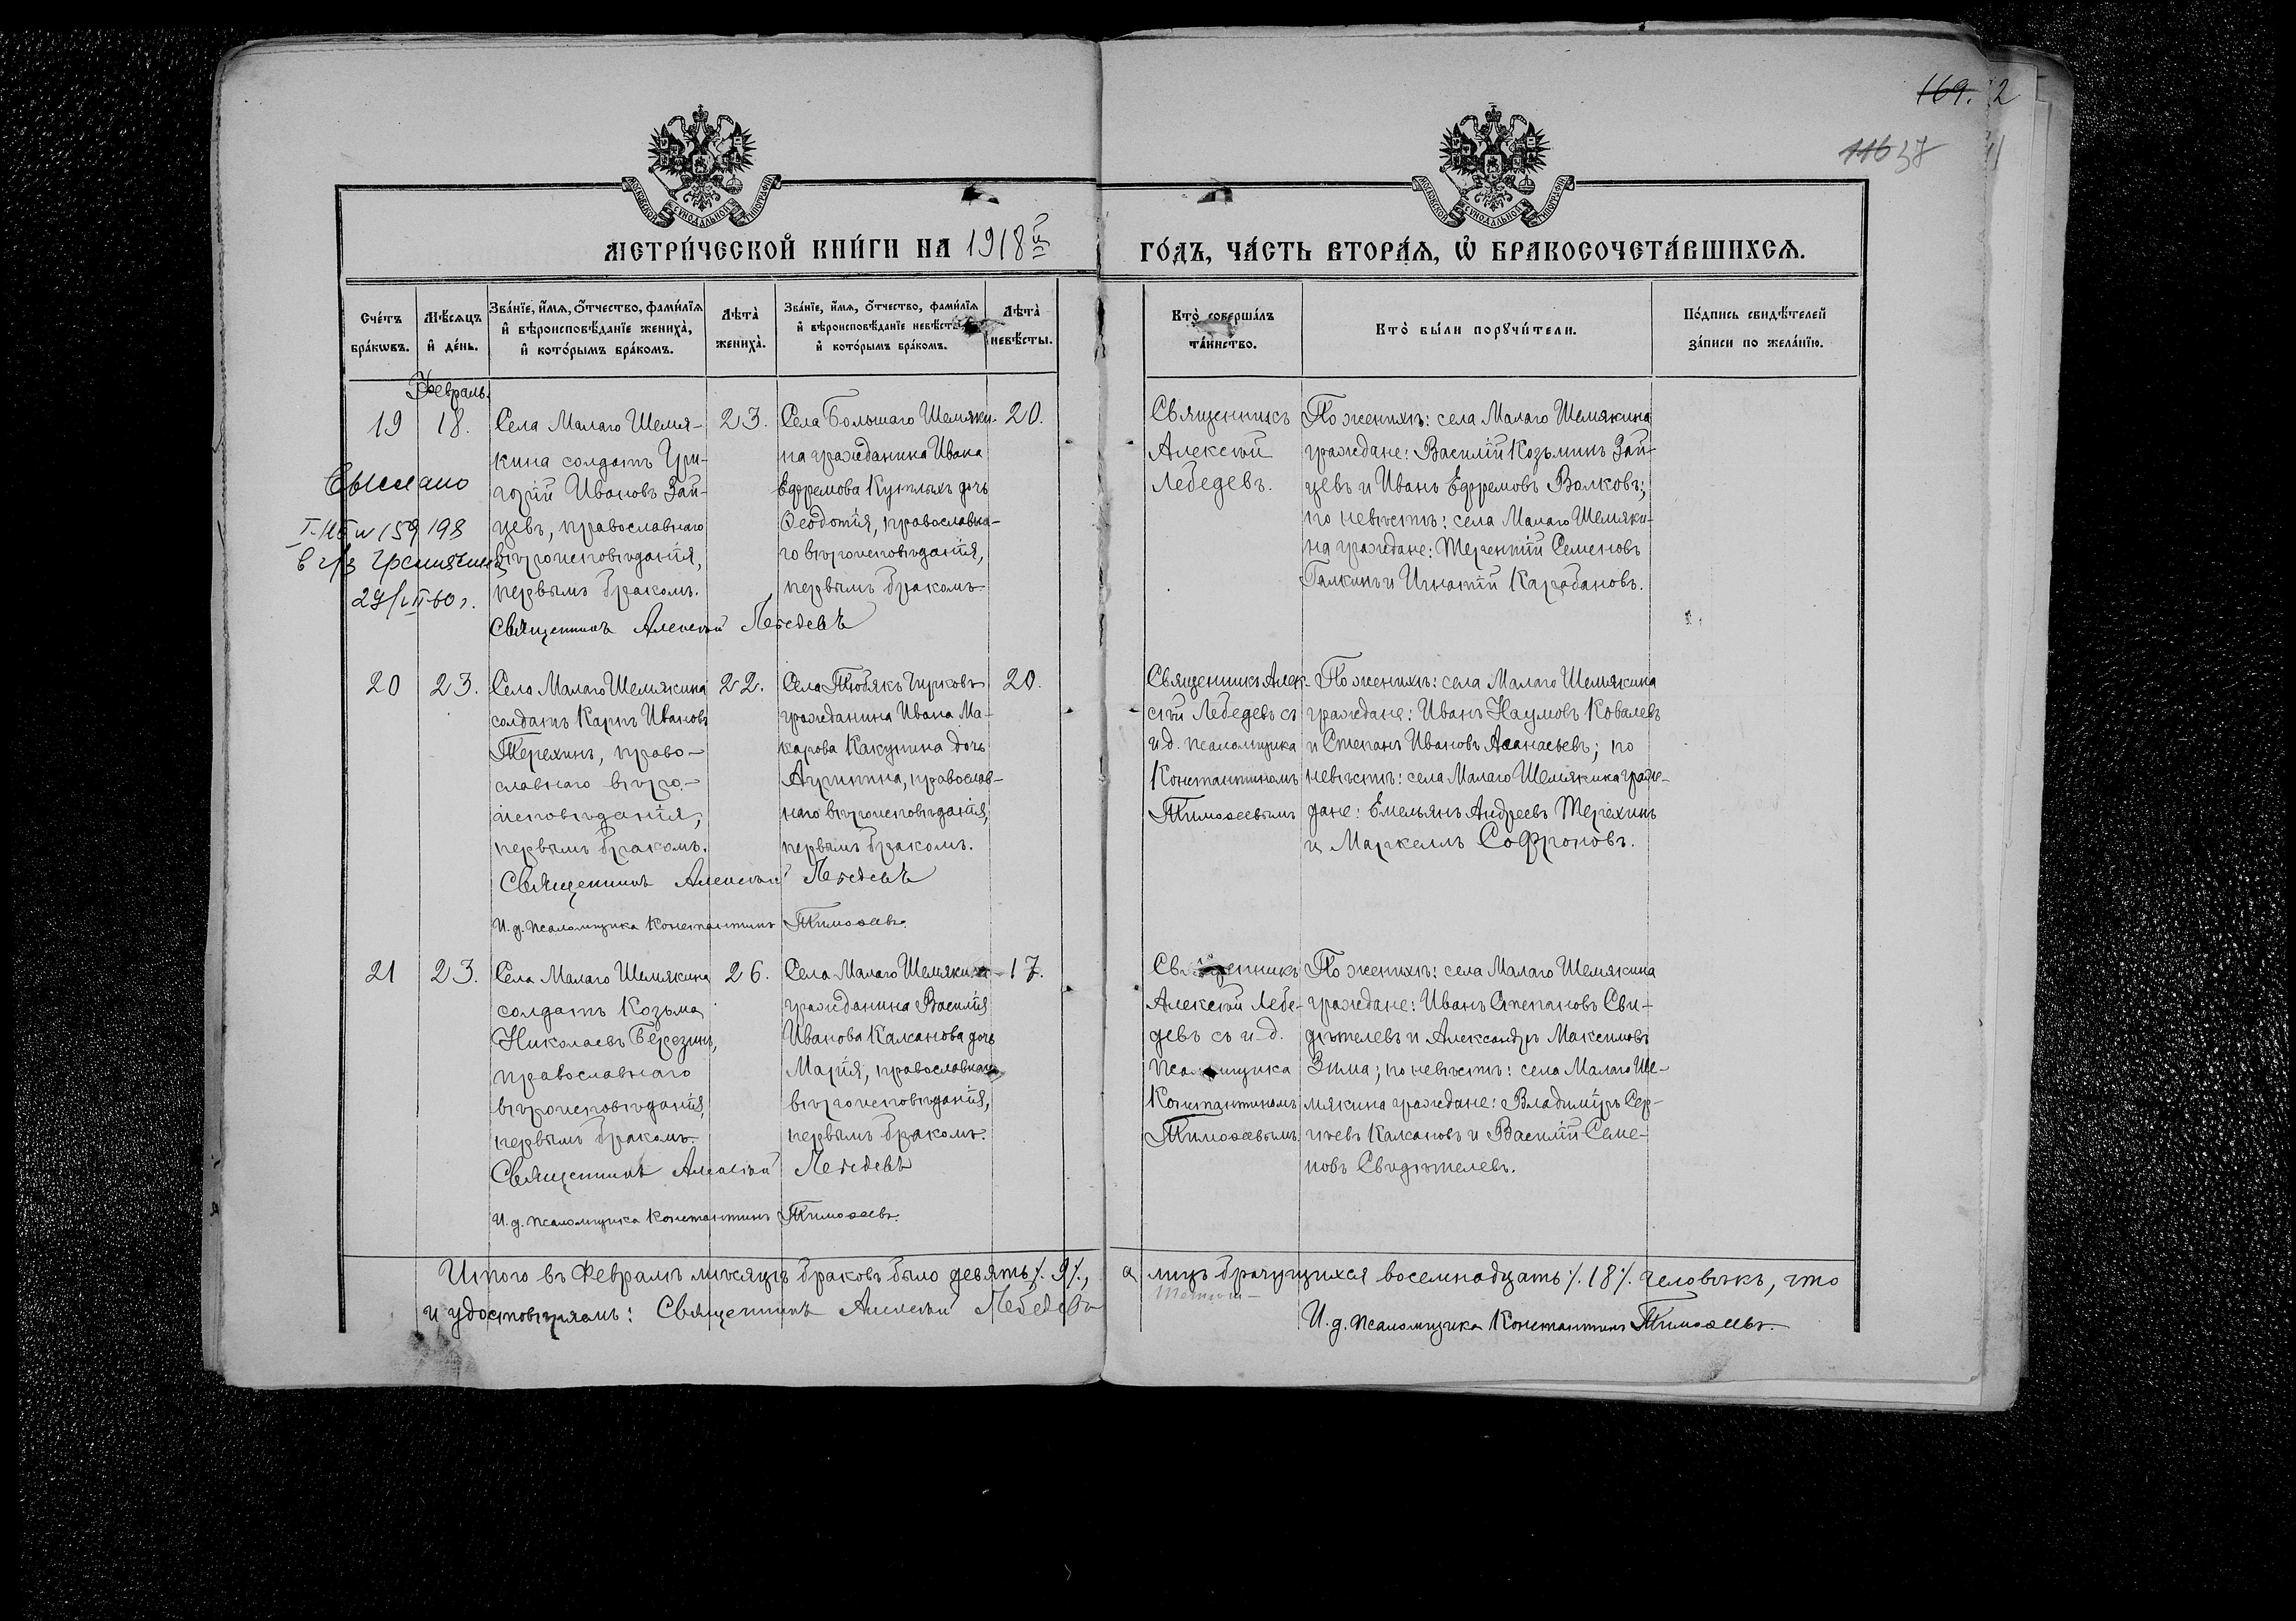 169. 2
116 37
МОСКОВСКОЙ СѴНОДАЛЬНОЙ ТИПОГРАФІИ
МОСКОВСКОЙ СѴНОДАЛЬНОЙ ТИПОГРАФІИ
МЕТРИ́ЧЕСКОЙ КНИ́ГИ НА 1918й
ГО́ДЪ, ЧА́СТЬ ВТОРА́Я, Ѡ҆ БРАКОСОЧЕТА́ВШИХСЯ.
Сче́тъ
бра́кѡвъ.
Мѣ́сяцъ
и҆ де́нь.
Зва́нїе, и҆́мя, ѻ҆́тчество, фами́лїя
и҆ вѣроисповѣ́данїе жениха̀,
и҆ кото́рымъ бра́комъ.
Лѣта̀
жениха̀.
Зва́нїе, и҆́мя, ѻ҆́тчество, фами́лїя
и҆ вѣроисповѣ́данїе невѣ́сты
и҆ кото́рымъ бра́комъ.
Лѣта̀
невѣ́сты.
Кто̀ соверша́лъ
та́инство.
Кто̀ бы́ли порꙋчи́тели.
По́дпись свидѣ́телей
за́писи по жела́нїю.
Февраль.
19
18.
Села Малаго Шемя-
кина солдатъ Гри-
горій Ивановъ Зай-
цевъ, православнаго
вѣроисповѣданія,
первымъ бракомъ.
23.
Села Большаго Шемяки-
на гражданина Ивана
Ефремова Куклыхъ дочь
Феодотія, православна-
го вѣроисповѣданія,
первымъ бракомъ.
20.
Священникъ
Алексѣй
Лебедевъ.
По женихѣ: села Малаго Шемякина
граждане: Василій Козьминъ Зай-
цевъ и Иванъ Ефремовъ Волковъ;
по невѣстѣ: села Малаго Шемяки-
на граждане: Терентій Семеновъ
Галкинъ и Игнатій Карабановъ.
Выслано
29/
Священникъ Алексѣй Лебедевъ
20
23.
Села Малаго Шемякина
солдатъ Карпъ Ивановъ
Терехинъ, право-
славнаго вѣро-
исповѣданія,
первымъ бракомъ.
22.
Села Тюбякъ Чирковъ
гражданина Ивана Ма-
карова Какунина дочь
Агрипина, православ-
наго вѣроисповѣданія,
первымъ бракомъ.
20.
Священникъ Алек-
сѣй Лебедевъ съ
и.д. псаломщика
Константиномъ
Тимоѳеевымъ
По женихѣ: села Малаго Шемякина
граждане: Иванъ Наумовъ Ковалевъ
и Степанъ Ивановъ Аѳанасьевъ; по
невѣстѣ: села Малаго Шемякина граж-
дане: Емельянъ Андреевъ Терехинъ
и Маркеллъ Софроновъ.
Священникъ Алексѣй Лебедевъ
И.д. псаломщика Константинъ Тимоѳеевъ.
21
23.
Села Малаго Шемякина
солдатъ Козьма
Николаевъ Березинъ,
православнаго
вѣроисповѣданія,
первымъ бракомъ.
26.
Села Малаго Шемякина
гражданина Василія
Иванова Калсанова дочь
Марія, православнаго
вѣроисповѣданія,
первымъ бракомъ.
17.
Священникъ
Алексѣй Лебе-
девъ съ и.д.
псаломщика
Константиномъ
Тимоѳеевымъ.
По женихѣ: села Малаго Шемякина
граждане: Иванъ Степановъ Сви-
дѣтелевъ и Александръ Максимовъ
Зима; по невѣстѣ: села Малаго Ше-
мякина граждане: Владиміръ Сер-
гѣевъ Калсановъ и Василій Семе-
новъ Свидѣтелевъ.
Священникъ Алексѣй Лебедевъ
И.д. псаломщика Константинъ Тимоѳеевъ.
Итого въ Февралѣ мѣсяцѣ браковъ было девять ∕. 9 ∕., а лицъ брачущихся восемнадцать ∕. 18 ∕. человѣкъ, что
и удостовѣряемъ: Священникъ Алексѣй Лебедевъ
И.д. псаломщика Константинъ Тимоѳеевъ.